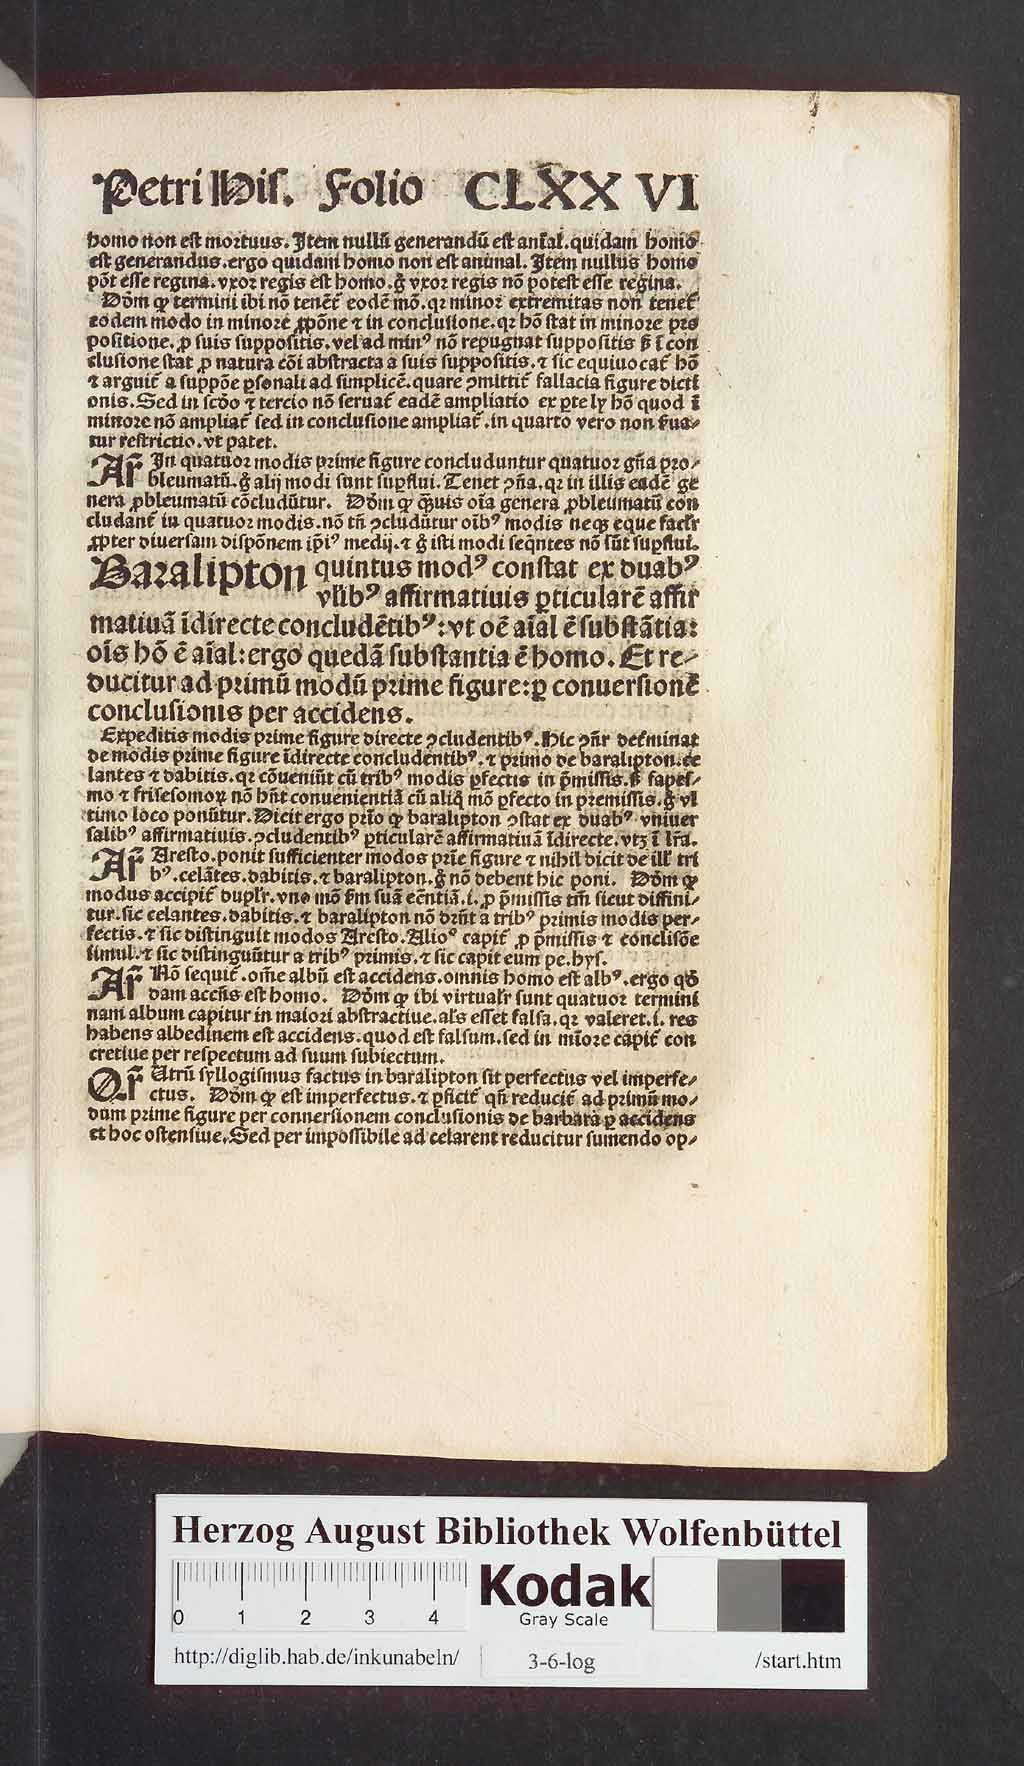 Petri His. Folio CLXX VI
homo non est mortuus. Item nullū generandū est aīal. quidam homo
est generandus. ergo quidam homo non est animal. Item nullus homo
pōt esse regina. vxor regis est homo. g̊ vxor regis nō potest esse regina.
Dōm ꝙ termini ibi nō tenēt eodē mō. qꝛ minor extremitas non tenet̄
eodem modo in minore ꝓpōne ⁊ in conclusione. qꝛ hō stat in minore pro
positione. ꝓ suis suppositis. vel ad minꝰ nō repugnat suppositis ß ī con
clusione stat ꝓ natura cōi abstracta a suis suppositis. ⁊ sic equiuocat̄ hō
⁊ arguit̄ a suppōe ꝑsonali ad simplicē. quare ꝯmittit̄ fallacia figure dicti
onis. Sed in scd̄o ⁊ tercio nō seruat̄ eadē ampliatio ex ꝑte ly hō quod ī
minore nō ampliat̄ sed in conclusione ampliat̄. in quarto vero non ẜua⸗
tur restrictio. vt patet.
Ar̄ In quatuor modis prime figure concluduntur quatuor gn̄a pro⸗
bleumatū. g̊ alij modi sunt suꝑflui. Tenet ꝯn̄a. qꝛ in illis eadē ge
nera ꝓbleumatū cōcludūtur. Dōm ꝙ q̄uis oīa genera ꝓbleumatū con
cludant̄ in quatuor modis. nō tn̄ ꝯcludūtur oībꝰ modis neqꝫ eque facl̄r
ꝓpter diuersam dispōnem ip̄iꝰ medij. ⁊ g̊ isti modi seqn̄tes nō sūt suꝑflui.
Baralipton quintus modꝰ constat ex duabꝰ
vl̄ibꝰ affirmatiuis ꝑticularē affir
matiuā īdirecte concludētibꝰ: vt oē aīal ē substātia:
oīs hō ē aīal: ergo quedā substantia ē homo. Et re⸗
ducitur ad primū modū prime figure: ꝑ conuersionē
conclusionis per accidens.
Expeditis modis prime figure directe ꝯcludentibꝰ. Hic ꝯn̄r det̄minat
de modis prime figure īdirecte concludentibꝰ. ⁊ primo de baralipton. ce
lantes ⁊ dabitis. qꝛ cōueniūt cū tribꝰ modis ꝑfectis in p̄missis. ß fapes⸗
mo ⁊ frisesomoꝝ nō hn̄t conuenientiā cū aliq̊ mō ꝑfecto in premissis. g̊ vl
timo loco ponūtur. Dicit ergo prīo ꝙ baralipton ꝯstat ex duabꝰ vniuer
salibꝰ affirmatiuis. ꝯcludentibꝰ ꝑticularē affirmatiuā īdirecte. vtꝫ ī lr̄a.
Ar̄ Aresto. ponit sufficienter modos prīe figure ⁊ nihil dicit de ill̄ tri
bꝰ. celātes. dabitis. ⁊ baralipton. g̊ nō debent hic poni. Dōm ꝙ
modus accipit̄ dupl̄r. vno mō ẜm suā eēntiā. i. ꝓ p̄missis tm̄ sicut diffini⸗
tur. sic celantes. dabitis. ⁊ baralipton nō drn̄t a tribꝰ primis modis per⸗
fectis. ⁊ sic distinguit modos Aresto. Alioº capit̄ ꝓ p̄missis ⁊ conclisōe
simul. ⁊ sic distinguūtur a tribꝰ primis. ⁊ sic capit eum pe. hys.
Ar̄ Nō sequit̄. om̄e albū est accidens. omnis homo est albꝰ. ergo qd̄
dam accn̄s est homo. Dōm ꝙ ibi virtual̄r sunt quatuor termini
nam album capitur in maiori abstractiue. al̄s esset falsa. qꝛ valeret. i. res
habens albedinem est accidens. quod est falsum. sed in mīore capit̄ con
cretiue per respectum ad suum subiectum.
Qr̄ Utrū syllogismus factus in baralipton sit perfectus vel imperfe⸗
ctus. Dōm ꝙ est imperfectus. ⁊ ꝑficit̄ qn̄ reducit̄ ad primū mo⸗
dum prime figure per connersionem conclusionis de barbara ꝑ accidens
et hoc ostensiue. Sed per impossibile ad celarent reducitur sumendo op⸗
Herzog August Bibliothek Wolfenbüttel
0 1 2 3 4
Kodak
Gray Scale
http://diglib.hab.de/inkunabeln/ 3-6-log /start.htm